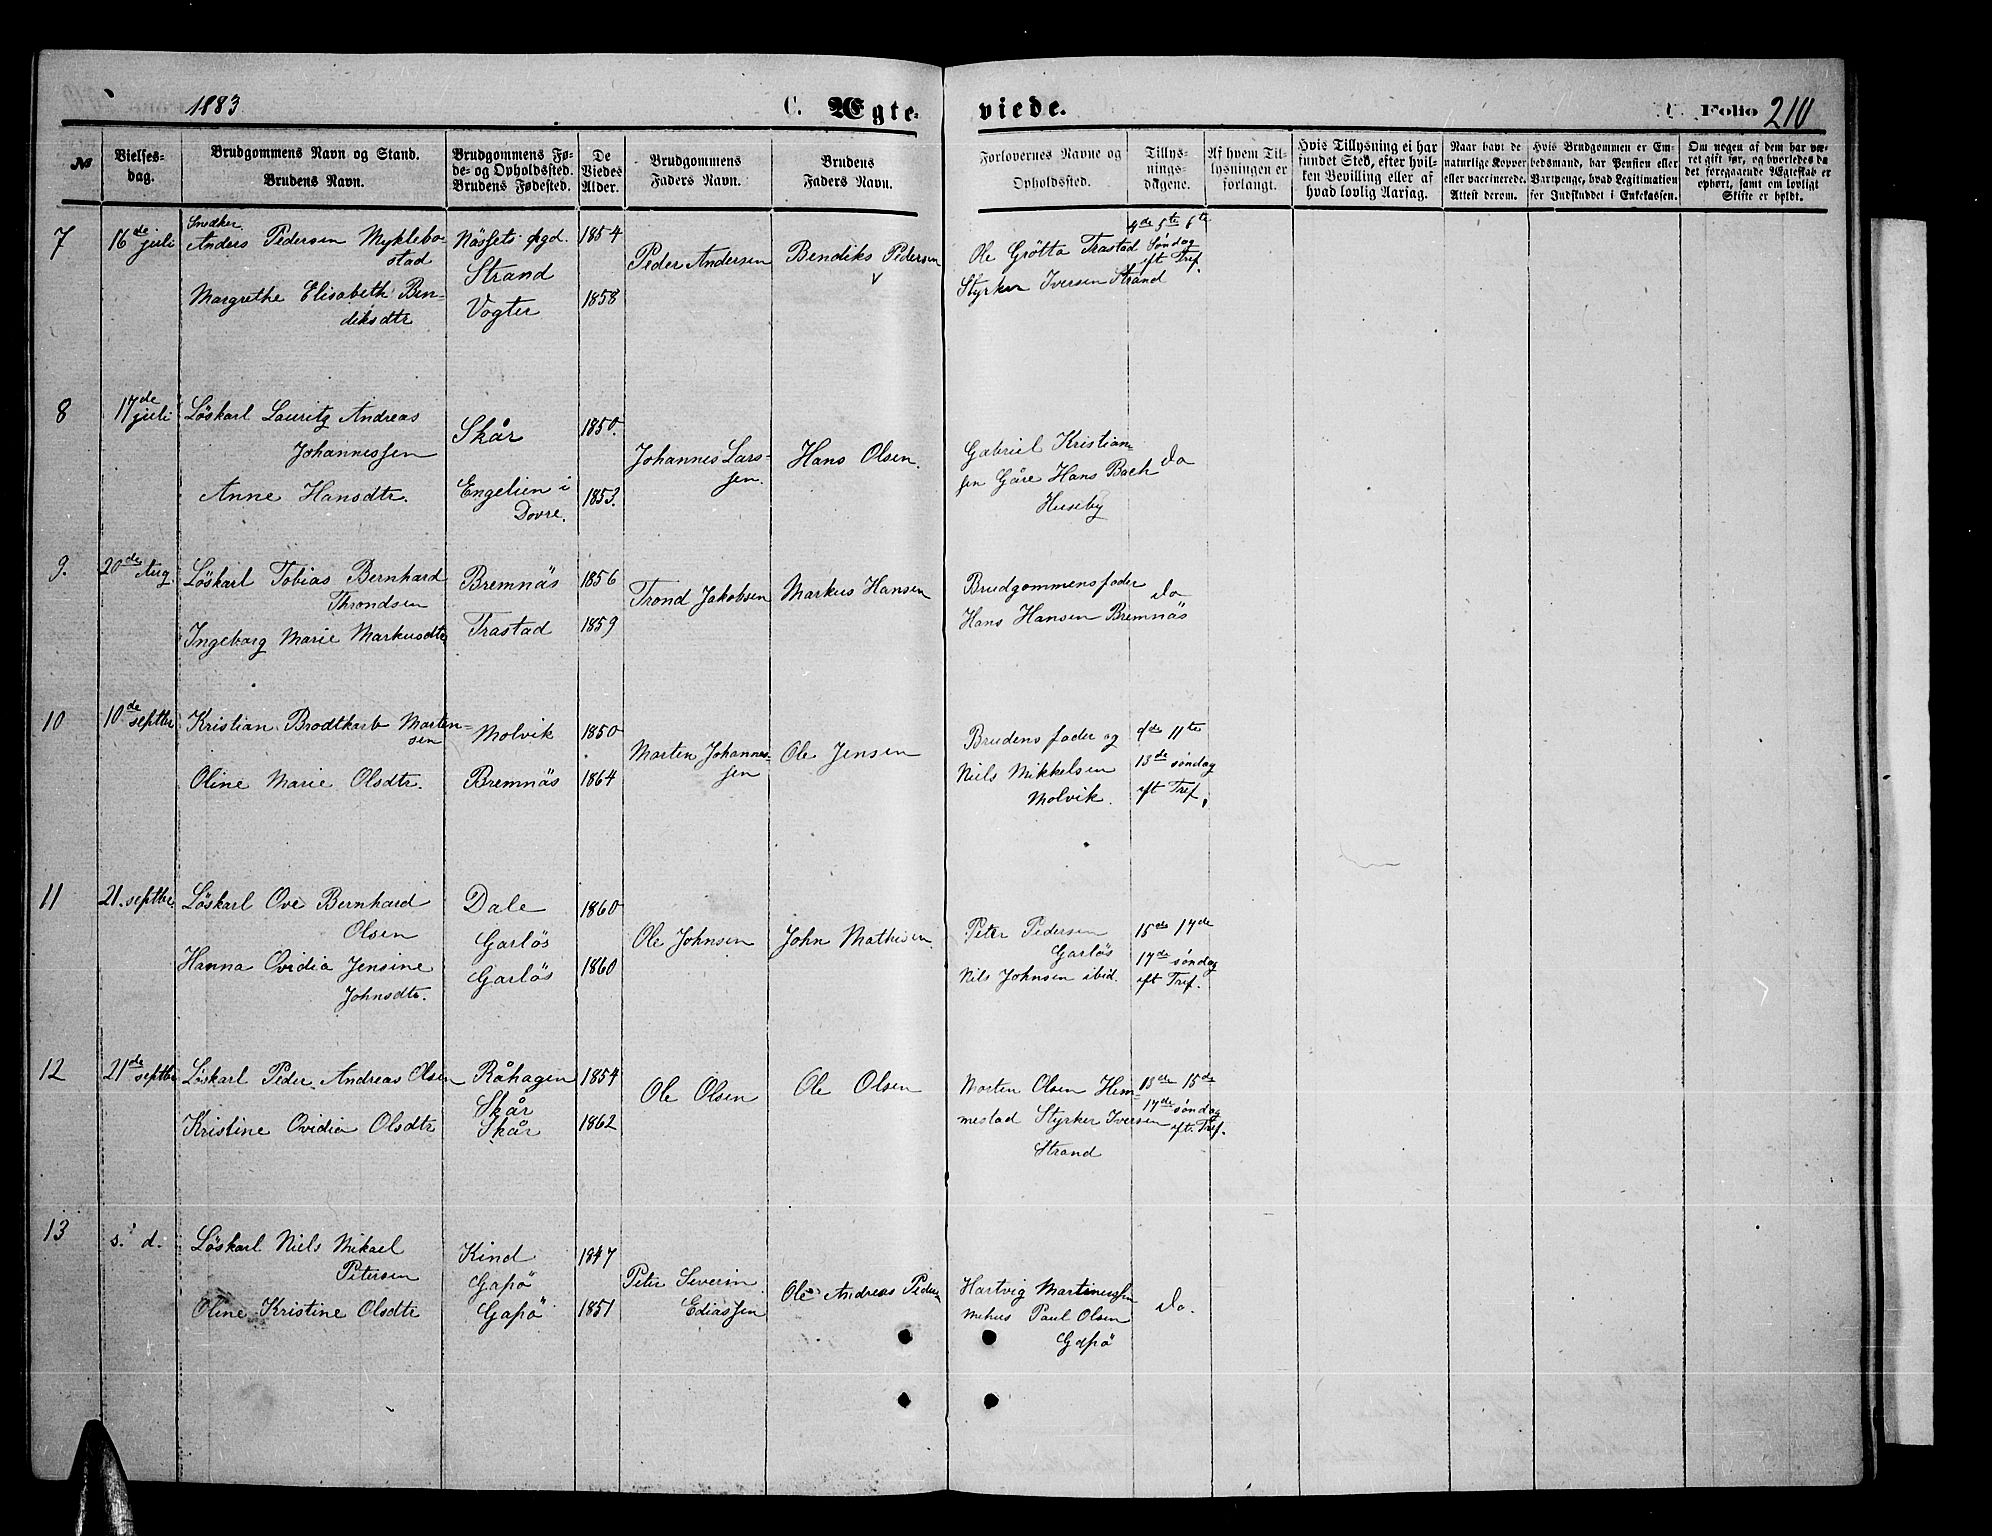 1883.
C. Ægteviede.
C. Folio 210
№
Vielsesdag.
Brudgommens Navn og Stand.
Brudens Navn.
Brudgommens Føde- og Opholdssted.
Brudens Fødested.
De Viedes Alder.
Brudgommens Faders Navn.
Brudens Faders Navn.
Forlovernes Navne og Opholdssted.
Tillysningsdagene.
Af hvem Tillysningen er forlangt.
Hvis Tillysning ei har fundet Sted, efter hvilken Bevilling eller af hvad lovlig Aarsag.
Naar havt de naturlige Kopper eller vaccinerede. Attest derom.
Hvis Brudgommen er Embedsmand, har Pension eller Vartpenge, hvad Legitimation for Indskuddet i Enkekassen.
Om nogen af dem har været gift før, og hvorledes da det foregaaende Ægteskab er ophørt, samt om lovligt Skifte er holdt.
7 16de juli
Snedker
Anders Pedersen Myklebostad
Margrethe Elisabeth Bendiksdtr
Nässets prgd.
Strand
Vogter
1854
1858
Peder Andersen
Bendiks Pedersen
Ole Grötta Trastad
Styrker Iversen Strand
4de 5te 6te
Søndag
eft Tref.
8 17de juli
Löskarl Lauritz Andreas
Johannessen
Anne Hansdtr.
Skår
Engelien i
Dovre.
1850.
1853.
Johannes Larssen.
Hans Olsen.
Gabriel Kristiansen Gåre Hans Bach
Huseby
do
9. 20de Aug.
Löskarl Tobias Bernhard
Throndsen
Ingeborg Marie Markusdtr
Bremnäs
Trastad
1856
1859
Trond Jakobsen
Markus Hansen
Brudgommens fader
Hans Hansen Bremnäs
do
10 10de septbr
Kristian Brodtkorb Mortensen
Oline Marie Olsdtr.
Molvik
Bremnäs
1850
1864
Morten Johannessen
Ole Jensen
Brudens fader og
Niels Mikkelsen
Molvik.
11te
13de søndag
eft Tref.
11 21. septbr.
Löskarl Ove Bernhard
Olsen
Hanna Ovidia Jensine
Johnsdtr.
Dale
Garlös
Garlös
1860
1860
Ole Johnsen
John Mathisen.
Peter Pedersen
Garlös
Nils Johnsen ibid.
15de 17de
17de søndag
eft Tref.
12 21de septbr
Löskarl Peder Andreas Olsen
Kristine Ovidia Olsdtr
Råhagen
Skår
Skår
1854
1862
Ole Olsen
Ole Olsen
Morten Olsen Hemmestad Styrker Iversen
Strand
13de 15de
17de søndag
eft. Tref.
13 s. d.
Löskarl Niels Mikael
Petersen
Oline Kristine Olsdtr
Kind
Gapö
Gapö
1847
1851
Peter Severin
Ediassen
Ole Andreas Peders
Hartvig Martinussen
Mehus Paul Olsen
Gapö
do.